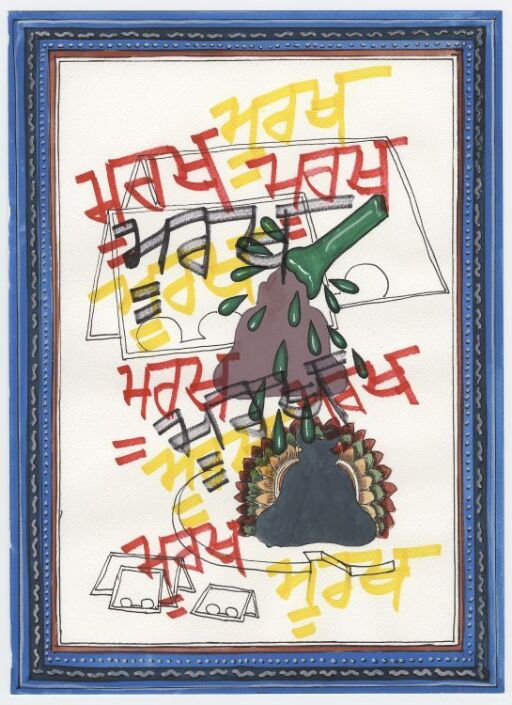 ਮੂਰਖ
ਮੂਰਖ ਮੂਰਖ
ਮੂਰਖ
ਮੂਰਖ
ਮੂਰਖ ਮੂਰਖ
ਮੂਰਖ
ਮੂਰਖ
ਮੂਰਖ
ਮੂਰਖ